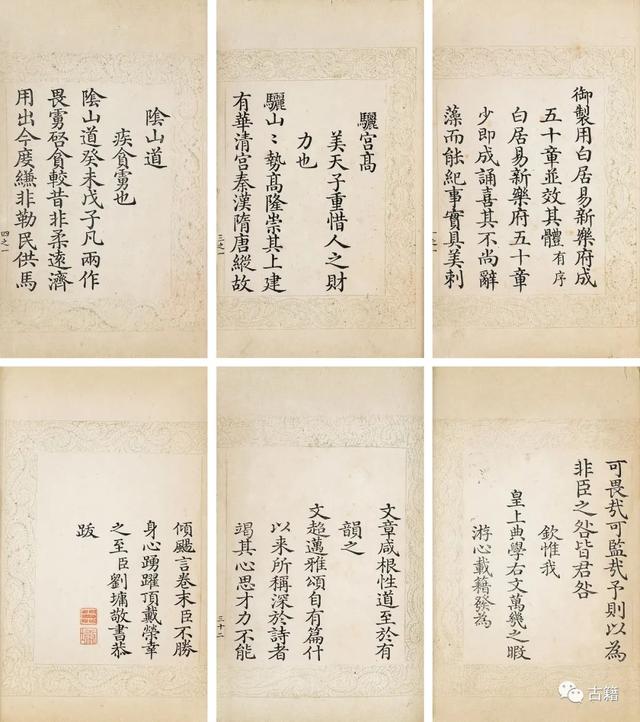 御製用白居易新樂府成
五十章並效其體 有序
白居易新樂府五十章
少即成誦喜其不尚辭
藻而能紀事實具美刺
驪宫髙
美天子重惜人之財
力也
驪山〻勢髙隆崇其上建
有華清宫秦漢隋唐縱故
三之一
陰山道
疾貪虜也
陰山道癸未戊子凡兩作
畏虜啓貪較昔非柔遠濟
用出今度縑非勒民供馬
四之一
可畏㢤可監㢤予則以為
非臣之咎皆君咎
欽惟我
皇上典學右文萬幾之暇
游心載籍發為
文章咸根性道至於有
韻之
文超邁雅頌自有篇什
以来所稱深於詩者
竭其心思才力不能
三十二
傾颺言卷末臣不勝
身心踴躍頂戴榮幸
之至臣劉墉敬書恭
跋
古籍